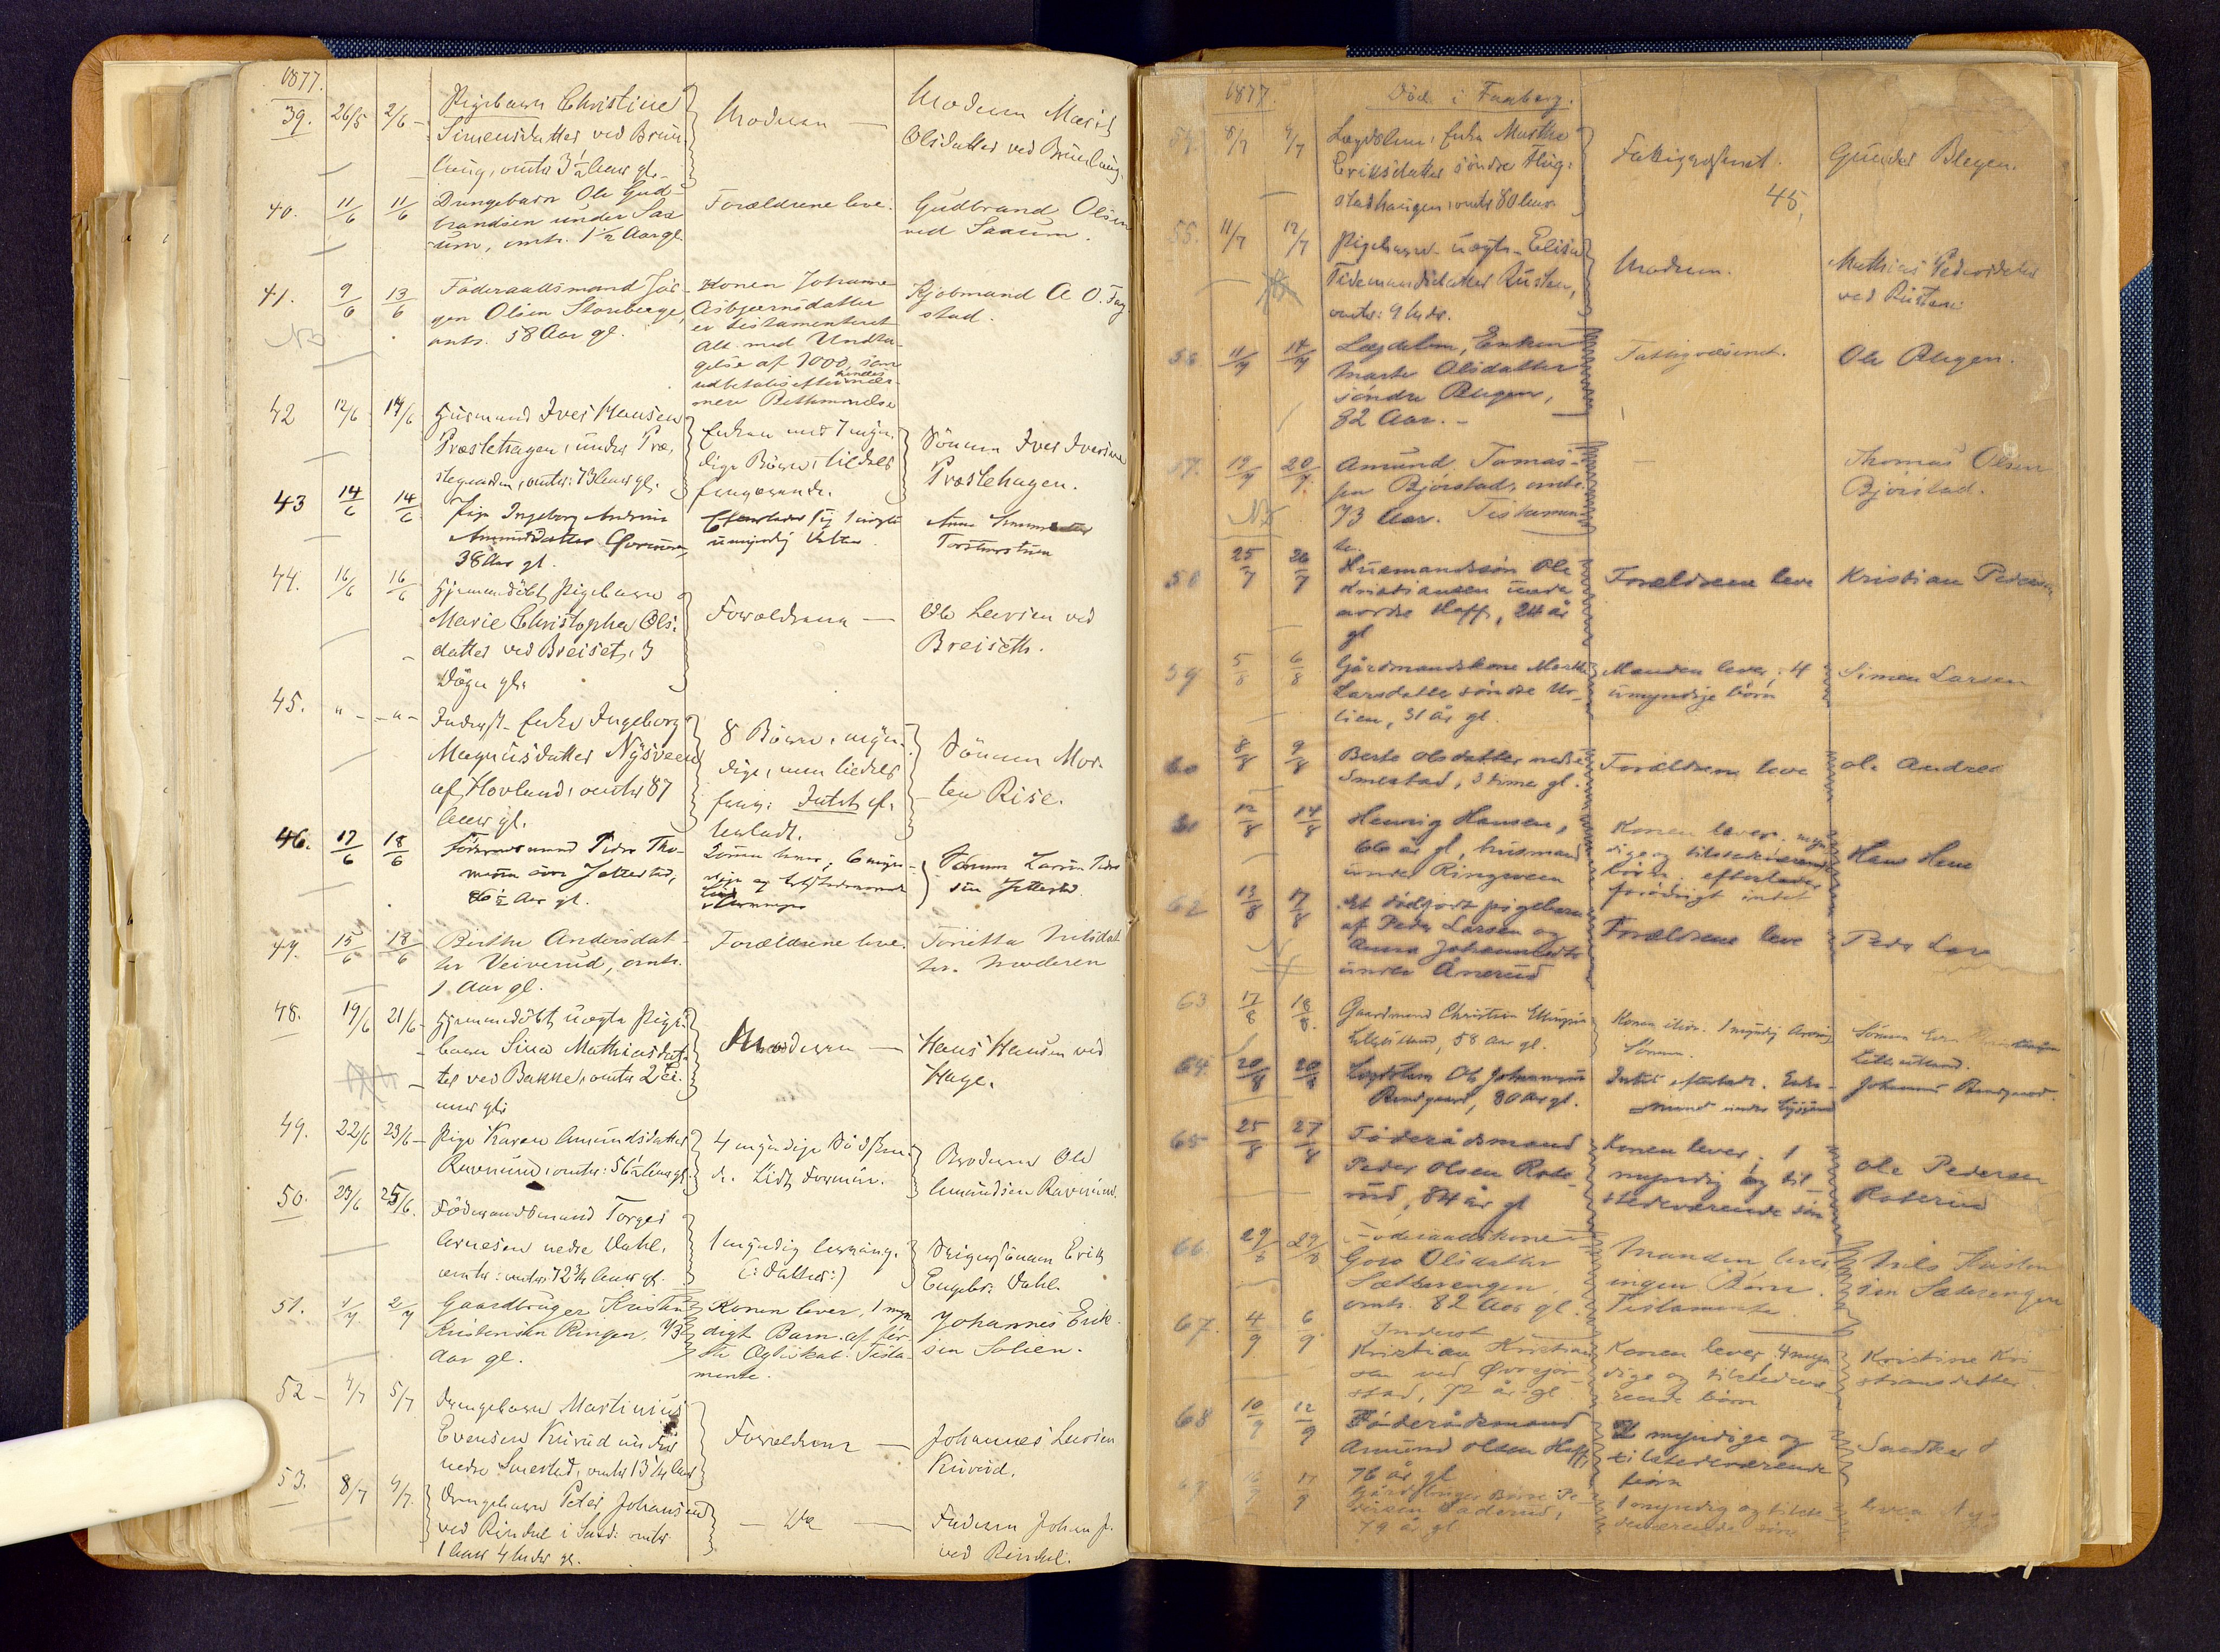 1877.
39. 26/5 2/6 Pigebarn Christine
Simensdatter ved Bruun
haug, omtr 3 1/2 Aar gl.
Moderen
Moderen Marit
Olsdatter ved Bruunhaug.
40. 11/6 11/6 Drengebarn Ole Gud-
brandsen under Sax
rum, omtr. 1 1/2 Aar gl.
Forældrene leve.
Gudbrand Olsen
ved Saxum.
41. 9/6 13/6 Føderaadsmand Jør-
gen Olsen Storeberge,
omtr. 58 Aar gl.
NB
Konen Johanne
Asbjørnsdatter
er testamenteret
Alt med Undta-
gelse af 1000, som
udbetales efter hendes
nær-
mere Bestemmelse
Kjøbmand A. O. Fag
stad.
42 12/6 14/6 Husmand Iver Hansen
Præstehagen, under Præ-
stegaarden, omtr: 73 Aar gl.
Enken med 7 myn-
dige Børn, tildels
fraværende.
Sønnen Iver Iversen
Præstehagen.
43 14/6 14/6 Pige Ingeborg Andrine
Amundsdatter
38 Aar gl.
Efterlader sig 1 uægte
umyndig Datter
Anna
44. 16/6 16/6 Hjemmedøbt Pigebarn
Marie Christopha Ols-
datter ved Breiset, 3
Døgn gl.
Forældrene
Ole Larsen ved
Breiseth.
45. " - - " - Inderst-Enke Ingeborg
Magnusdatter Nysveen
af Hovland, omtr 87
Aar gl.
8 Børn, myn-
dige, men tildels
frav: Intet ef-
terladt.
Sønnen Mor-
ten Rise.
46. 17/6 18/6 Føderaadsmand Peder Tho-
Jættestad,
86 1/2 Aar gl.
Sønnen Lars Peder
sen Jættestad
47. 15/6 18/6 Birthe Andersdat-
ter Veiverud, omtr.
1 Aar gl.
Forældrene leve.
Torietta Nilsdat
ter. Moderen
48. 19/6 21/6 Hjemmedøbt uægte Pige-
barn Sina Mathiasdat-
ter ved Bakke, omtr 2 Ti-
mer gl.
Moderen
Hans Hansen ved
Hage.
49. 22/6 23/6 Pige Karen Amundsdatter
Ravnum, omtr: 56 1/2 Aar gl.
4 myndige Sødsken-
de. Lidt Formue.
Broderen Ole
Amundsen Ravnum.
50. 23/6 25/6. Føderaadsmand Torger
Arnesen nedre Dahl,
omtr: 72 3/4 Aar gl.
1 myndig Livsarving.
(: Datter:)
Svigersønnen Erik
Engebr: Dahl.
51. 1/7 2/7 Gaardbruger Kristen
Kristensen Ringen, 43
Aar gl.
Konen lever, 1 myn
digt Barn af før-
ste Ægteskab. Testa-
mente.
Johannes Erik-
sen Solien.
52 - 4/7 5/7 Drengebarn Martinius
Evensen Kuerud under
nedre Smestad, omtr 13 3/4 Aar
Forældrene
Johannes Larsen
Kuerud.
53. 8/7 9/7. Drengebarn Peter Johansen
ved Rindal i omtr
1 Aar 4 Mdr gl.
- Do -
Faderen Johan J.
ved Rindal.
1877. Død i Faaberg.
54. 8/7 9/7 Lægdslem, Enke Marthe
Eriksdatter søndre Flug-
stadhaugen, omtr 80 Aar
Fattigvæsenet.
Gunder Blegen.
48,
55. 11/7 12/7 Pigebarn uægte Elise
Tidemandsdatter Rusten,
omtr: 9 Mdr.
Moderen.
Mathias Pedersen
ved Rusten
56 11/7 14/7 Lægdslem, Enken
Marte Olsdatter
søndre Blegen,
82 Aar. -
Fattigvæsenet.
Ole Blegen.
57. 19/7 20/7 Amund Tomas-
sen Bjørstad, omtr.
73 Aar. Testamen
te.
NB
Thomas Olsen
Bjørstad.
58 25/7 26/7 Husmandssøn Ole
Kristiansen under
nordre Hoff, 24 år
gl
Forældrene leve
Kristian Pedersen
59 5/8 6/8 Gårdmandskone Marthe
Larsdatter søndre Ur-
lien, 31 år gl.
Manden lever, 4
umyndige børn
Simen Larsen
60 8/8 9/8 Berte Olsdatter nedre
Smestad, 3 timer gl.
Forældrene leve
Ole Andrea
61 12/8 14/8 Henrig Hansen,
66 år gl, husmand
under Ringsveen
Konen lever, myn
dige og tilstedeværende
børn. efterlader
forøvrigt intet
Hans Hen
62 13/8 17/8 Et dødfødt pigebarn
af Peder Larsen og
Anna Johannesdtr
under Ånerud
Forældrene leve
Peder Lar
63 17/8 18/8. Gaardmand Christian
58 Aar gl.
1 myndig
Sønnen
64 20/8 20/8 Lægdslem Ole Johannesen
Rundgaard, 80 Aar gl.
Intet efterladt.
Johannes Rundgaard.
65 25/8 27/8 Føderådsmand
Peder Olsen Rode-
rud, 84 år gl
Konen lever; 1
myndig og til-
stedeværende søn
Ole Pedersen
Roterud
66. 27/8 29/8 Føderaadskone
Goro Olsdatter
Sætterengen,
omtr. 82 Aar gl.
Manden lever
ingen Børn.
Testamente.
Nils Kristen
sen Sæterengen
67. 4/9 6/9. Inderst
Kristian Kristian
sen ved Øvregjør-
stad, 72 år gl
Konen lever. 4 myn
dige og tilstedevæ-
rende børn
Kristine Kri-
stiansdatter
68 10/9 12/9 Føderådsmand
Amund Olsen Hoff,
76 år gl
2 myndige og
tilstedeværende
børn
69 17/9 Gårdbruger
79 år gl
1 myndig og tilste-
deværende søn